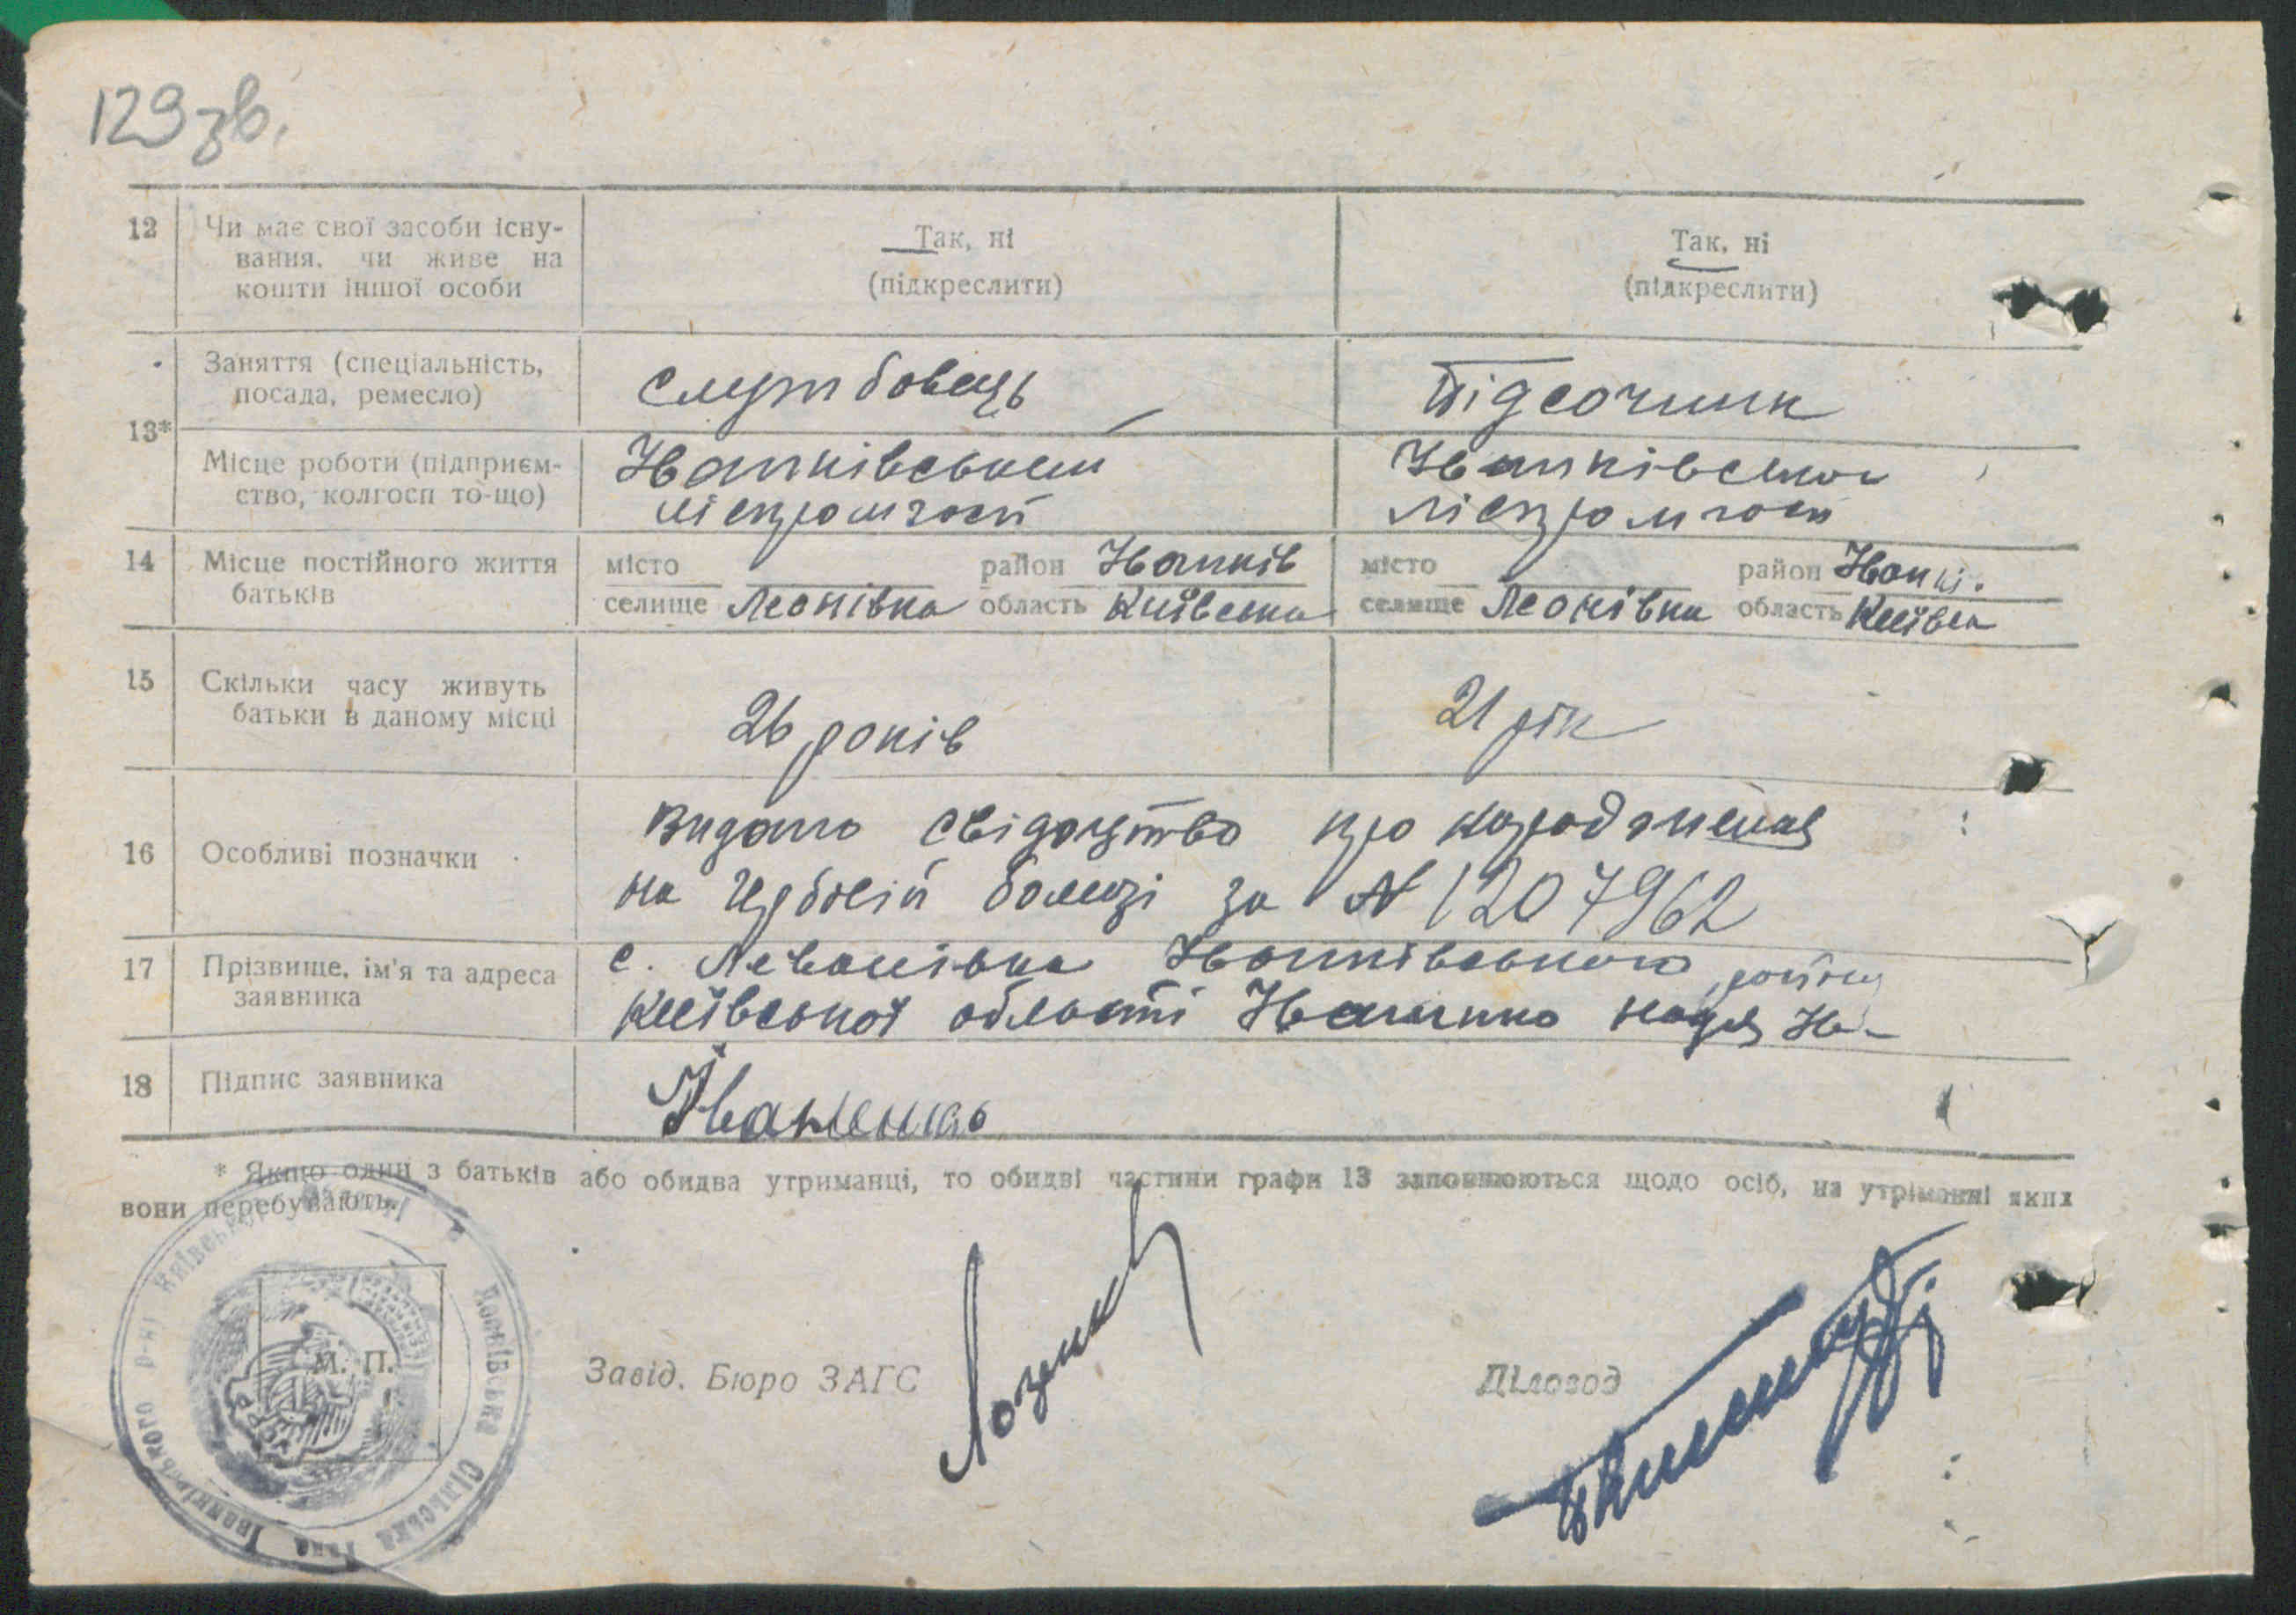 129 зв.
12 Чи має свої засоби існу- Так, ні Так, ні
вання, чи живе на (підкреслити) (підкреслити)
кошти іншої особи
13*
Заняття (спеціальність, службовець підсочник
посада, ремесло)
Місце роботи (підприєм- Іванківський Іванківський
ство, колгосп то-що) ліспромгосп ліспромгосп
14 Місце постійного життя місто район Іванків місто район Іванкі.
батьків селище Леонівка область Київська селище Леонівка область Київськ
15 Скільки часу живуть 26 років 21 рік
батьки в даному місці
16 Особливі позначки Видано свідоцтво про народження
на гербовій бомазі за № 1207962
17 Прізвище, ім'я та адреса с. Леванівка Іванківського району
заявника Київської області Іваненко Надія Ів-
18 Підпис заявника Іваненко
* Якщо один з батьків або обидва утриманці, то обидві частини графи 13 заповнюються щодо осіб, на утріманні яких
вони перебувають.
М. П.
Завід. Бюро ЗАГС
Діловод